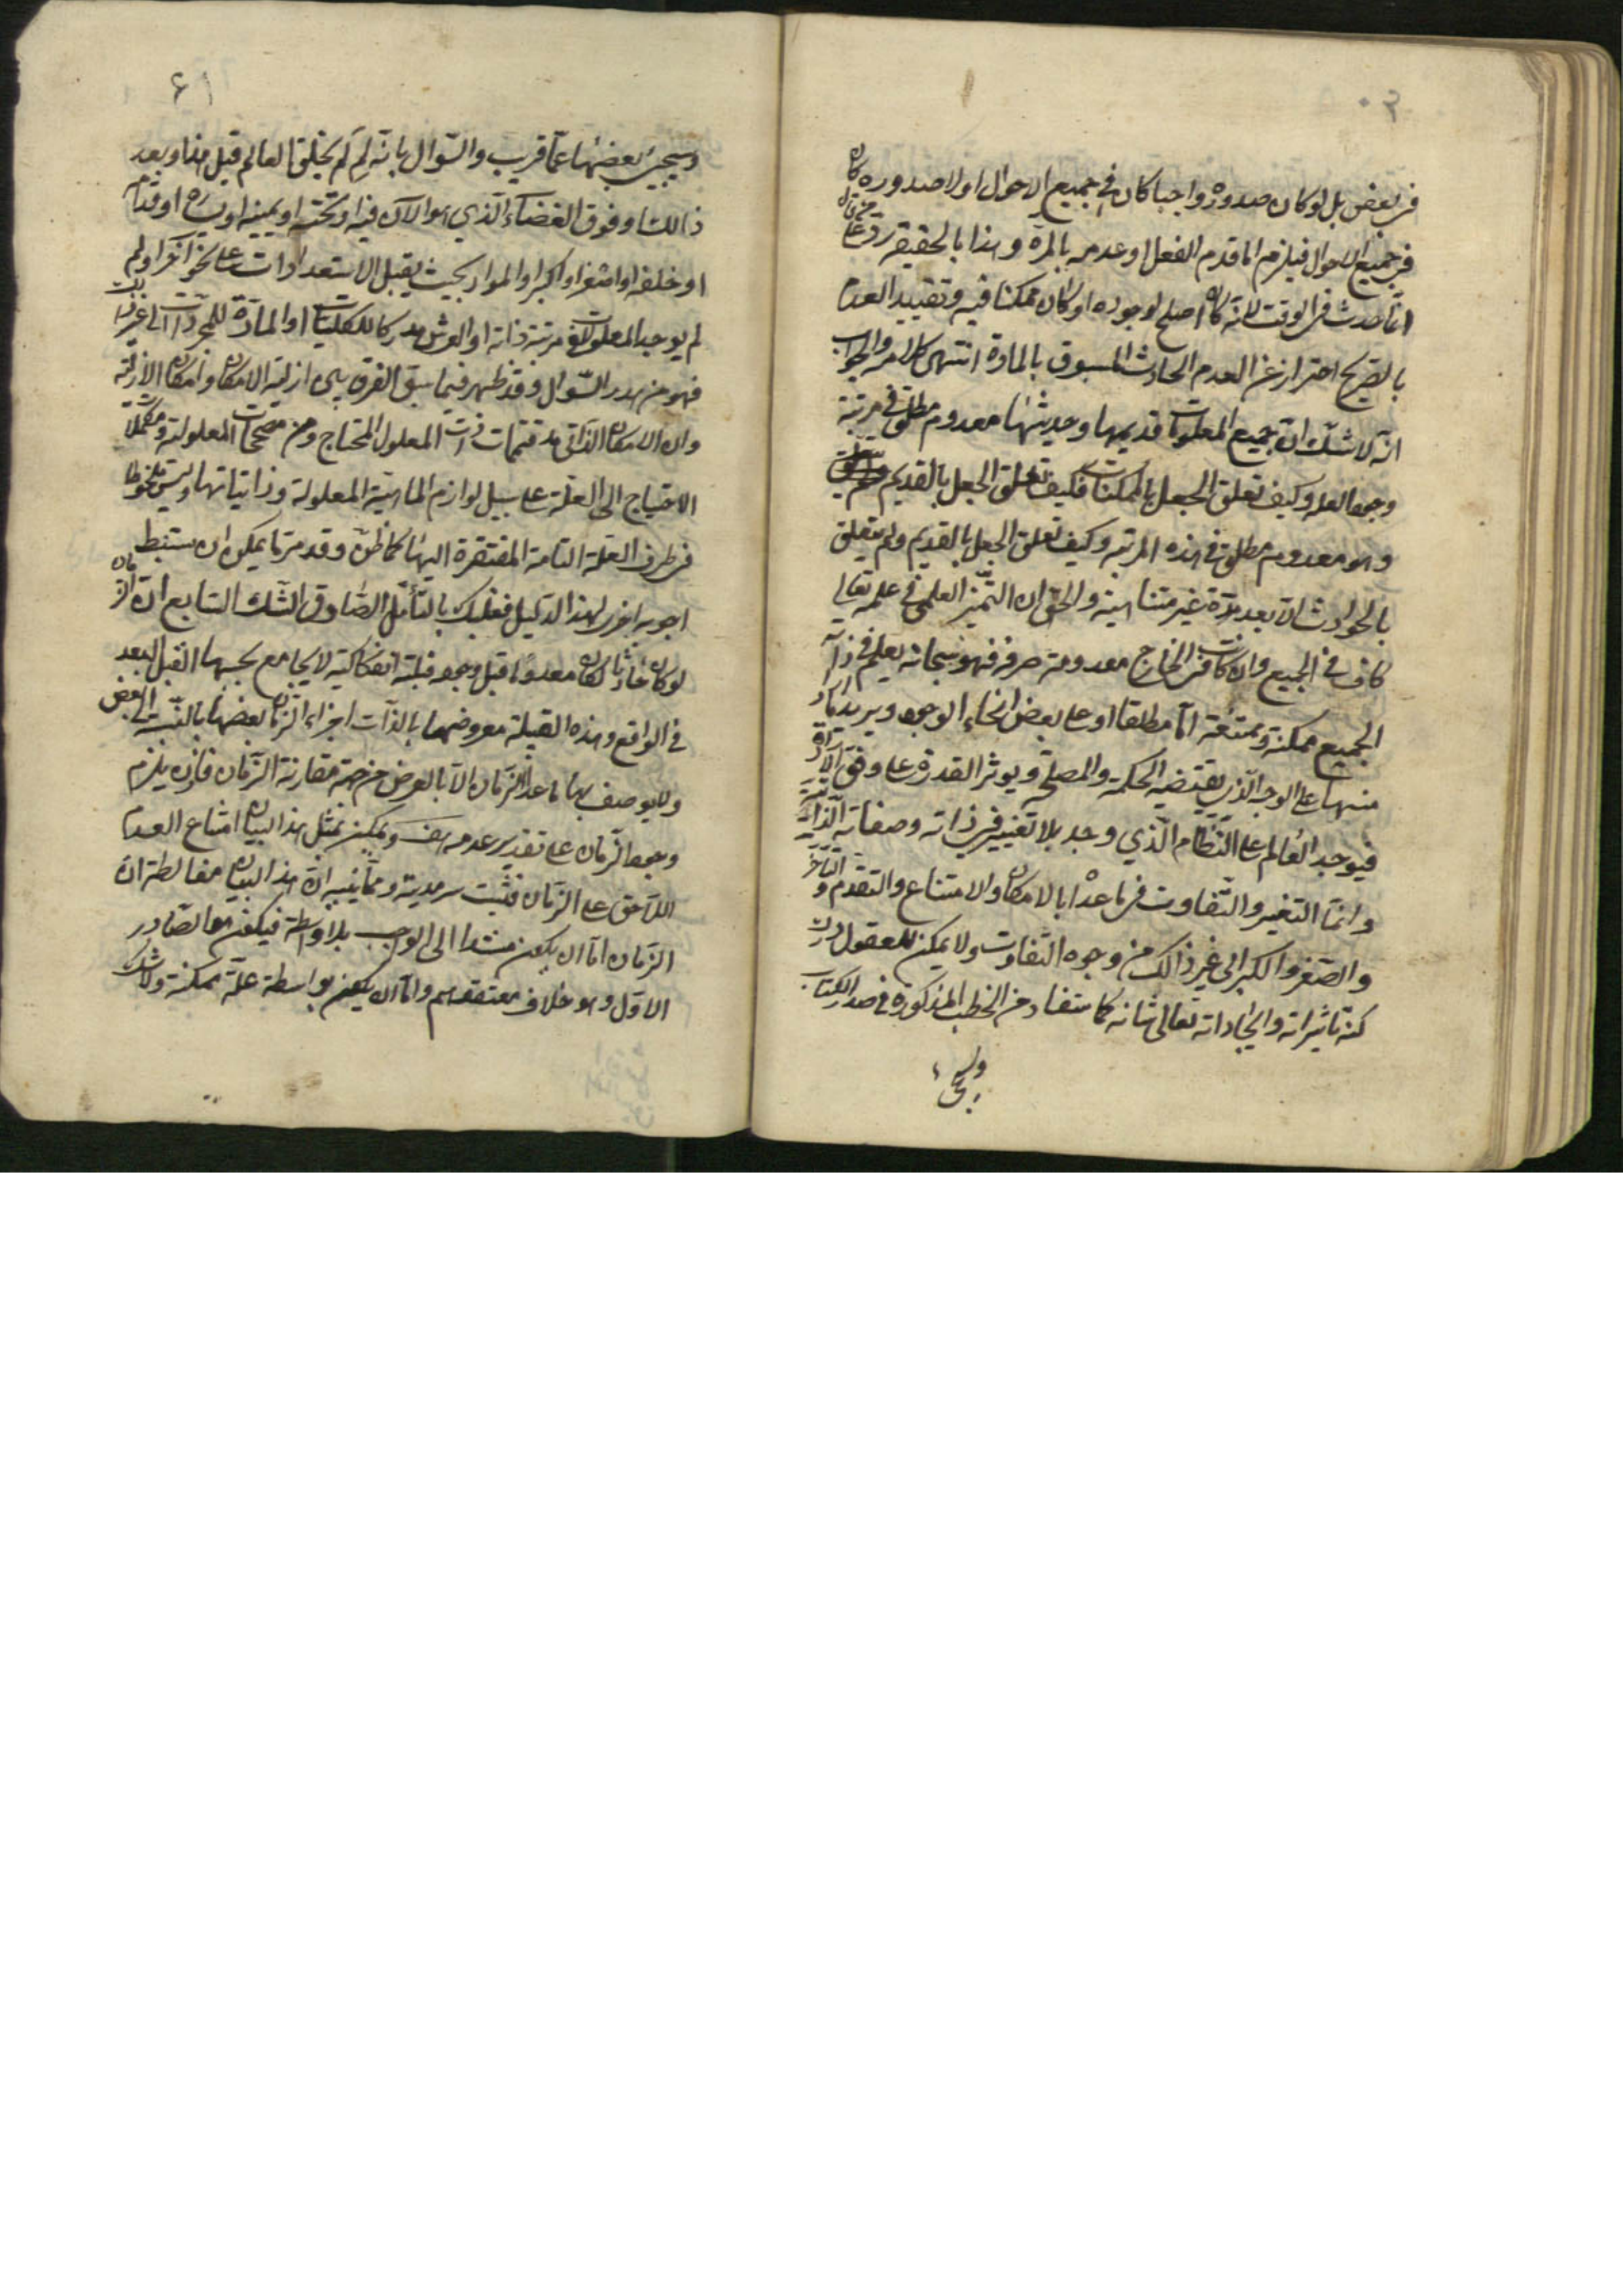 في بعض بل لو كان صدوره واجبا كان في جميع الاحوال او لا صدوره كان
في جميع الاحوال فيلزم اما قدم الفعل او عدمه بالمرة وهذا بالحقيقة رد على من قال
انما حدث في الوقت لانه كان اصلح لوجوده او كان ممكنا فيه وتقييد العدم
بالصريح احتراز عن العدم الحادث المسبوق بالمادة انتهى كلامه والجواب
انه لا شك ان جميع المعلولات قديمها وحديثها معدوم مطلق في مرتبة
وجود العلة وكيف تعلق الجعل بالممكنات فكيف تعلق الجعل بالقديم
وهو معدوم مطلق في هذه المرتبة وكيف تعلق الجعل بالقديم ولم يتعلق
بالحوادث الا بعد مدة غير متناهية والحق ان التميز العلمي في علمه تعالى
كاف في الجميع وان كانت في الخارج معدومة صرفة فهو سبحانه يعلم في ذاته
الجميع ممكنة وممتنعة اما مطلقا او على بعض انحاء الوجود ويريد ايجاد
منها على الوجه الذي يقتضيه الحكمة والمصلحة ويوثر القدرة على وفق الارادة
فيوجد العالم على النظام الذي وجد بلا تغيير في ذاته وصفاته الذاتية
وانما التغير والتفاوت فيما عداه بالامكان والامتناع والتقدم والتاخر
والصغر والكبر الى غير ذلك من وجوه التفاوت ولا يمكن للعقول درك
كنه تاثيراته وايجاداته تعالى شانه كما ستفاد من الخطب المذكورة في صدر الكتاب
وسيجي
٤١
وسيجيئ بعضها عما قريب والسؤال بانه لم لم يخلق العالم قبل هذا وبعد
ذالك او فوق الفضاء الذي هو الآن فيه او تحته او يمينه او يساره او قدام
او خلفه او اصغر او اكبر او المواد بحيث يقبل الاستعدادات على نحو آخر او لم
لم يوجد المعلولات في مرتبة ذاته او العرش مدركا للكليات او المادة للمجردات الى غير ذلك
فهو من هدر السؤال وقد ظهر فيما سبق الفرق بين ازلية الامكان وامكان الازلية
وان الامكان الذاتي من متممات ذات المعلول المحتاج ومن مصححات المعلولية ومكملات
الاحتياج الى العلة على سبيل لوازم الماهية المعلولة وذاتياتها وليس ملحوظا
في طرف العلة التامة المفتقرة اليها كما ظن وقد مر ما يمكن ان يستنبط
اجوبه اخرى لهذا الدليل فعليك بالتأمل الصادق الشك السابع ان الزمان
لو كان حادثا لكان معدوما قبل وجوده قبلية انفكاكية لا يجامع بحسبها القبل البعد
في الواقع وهذه القبلية معروضها بالذات اجزاء الزمان بعضها بالنسبة الى البعض
ولا يوصف بها ما عدا الزمان الا بالعرض من جهة مقارنة الزمان فاذن يلزم
وجود الزمان على تقدير عدمه هف ويمكن بمثل هذا البيان امتناع العدم
اللاحق على الزمان فثبت سرمديته ومما ينبه ان هذا البيان مغالطة ان
الزمان اما ان يكون مستندا الى الواجب بلا واسطة فيكون هو الصادر
الاول وهو خلاف معتقدهم واما ان يكون بواسطة علة ممكنة ولا شك